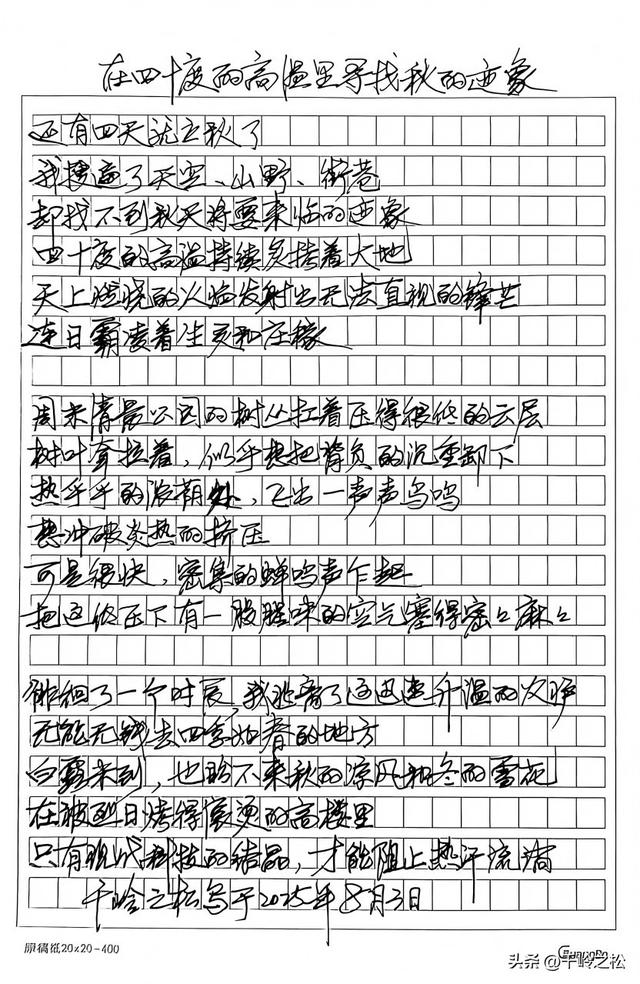 在四十度的高温里寻找秋的迹象
还有四天就立秋了
我搜遍了天空、山野、街巷
却找不到秋天将要来临的迹象
四十度的高温持续笼接着大地
天上燃烧的火焰发射出无法直视的锋芒
连日霸凌着生灵和庄稼
周末清晨公园的树丛扛着压得很低的云层
树叶耷拉着，似乎想把背负的沉重卸下
热乎乎的浓荫处，飞出一声声鸟鸣
想冲破炎热的挤压
可是很快，密集的蝉鸣声乍起
把这低压下有一股腥味的空气塞得密密麻麻
徘徊了一个时辰，我逃离了这迅速升温的火炉
无能无钱去四季如春的地方
白露未到，也盼不来秋的凉风和冬的雪花
在被烈日烤得像烫的高楼里
只有现代科技的结晶，才能阻止热汗流淌
千岭之松写于2025年8月3日
原稿纸20×20-400
GuangBo
头条@千岭之松